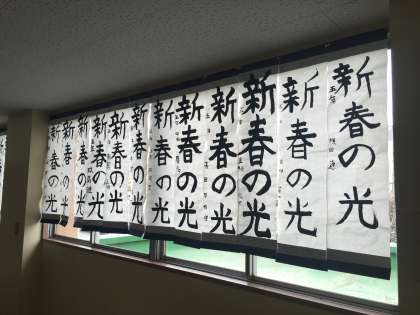 新春の光
五年
新春の光
新春の光
新春の光
新春の光
新春の光
新春の光
新春の光
新春の光
新春の光
新春の光
新春の光